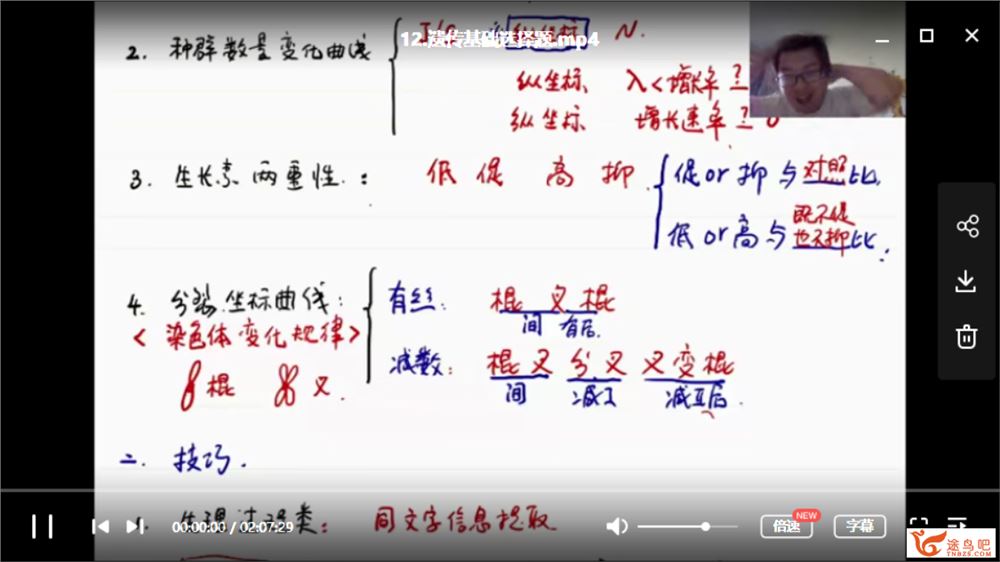 12.遗传基础选择题.mp4
2. 种群数量变化曲线
纵坐标 N.
纵坐标 λ<增长率?
纵坐标 增长速率? 0
3. 生长素两重性: 低促 高抑
促or抑与对照比
低or高与既不促也不抑比.
4. 分裂坐标曲线:
<染色体变化规律>
棍 叉.
有丝: 棍叉棍
间 有后.
减数: 棍叉分叉叉变棍
间 减I 减II后.
二. 技巧.
同文字信息提取.
00:00:00 / 02:07:29
倍速
NEW
字幕
途鸟吧
TN8ZS.COM